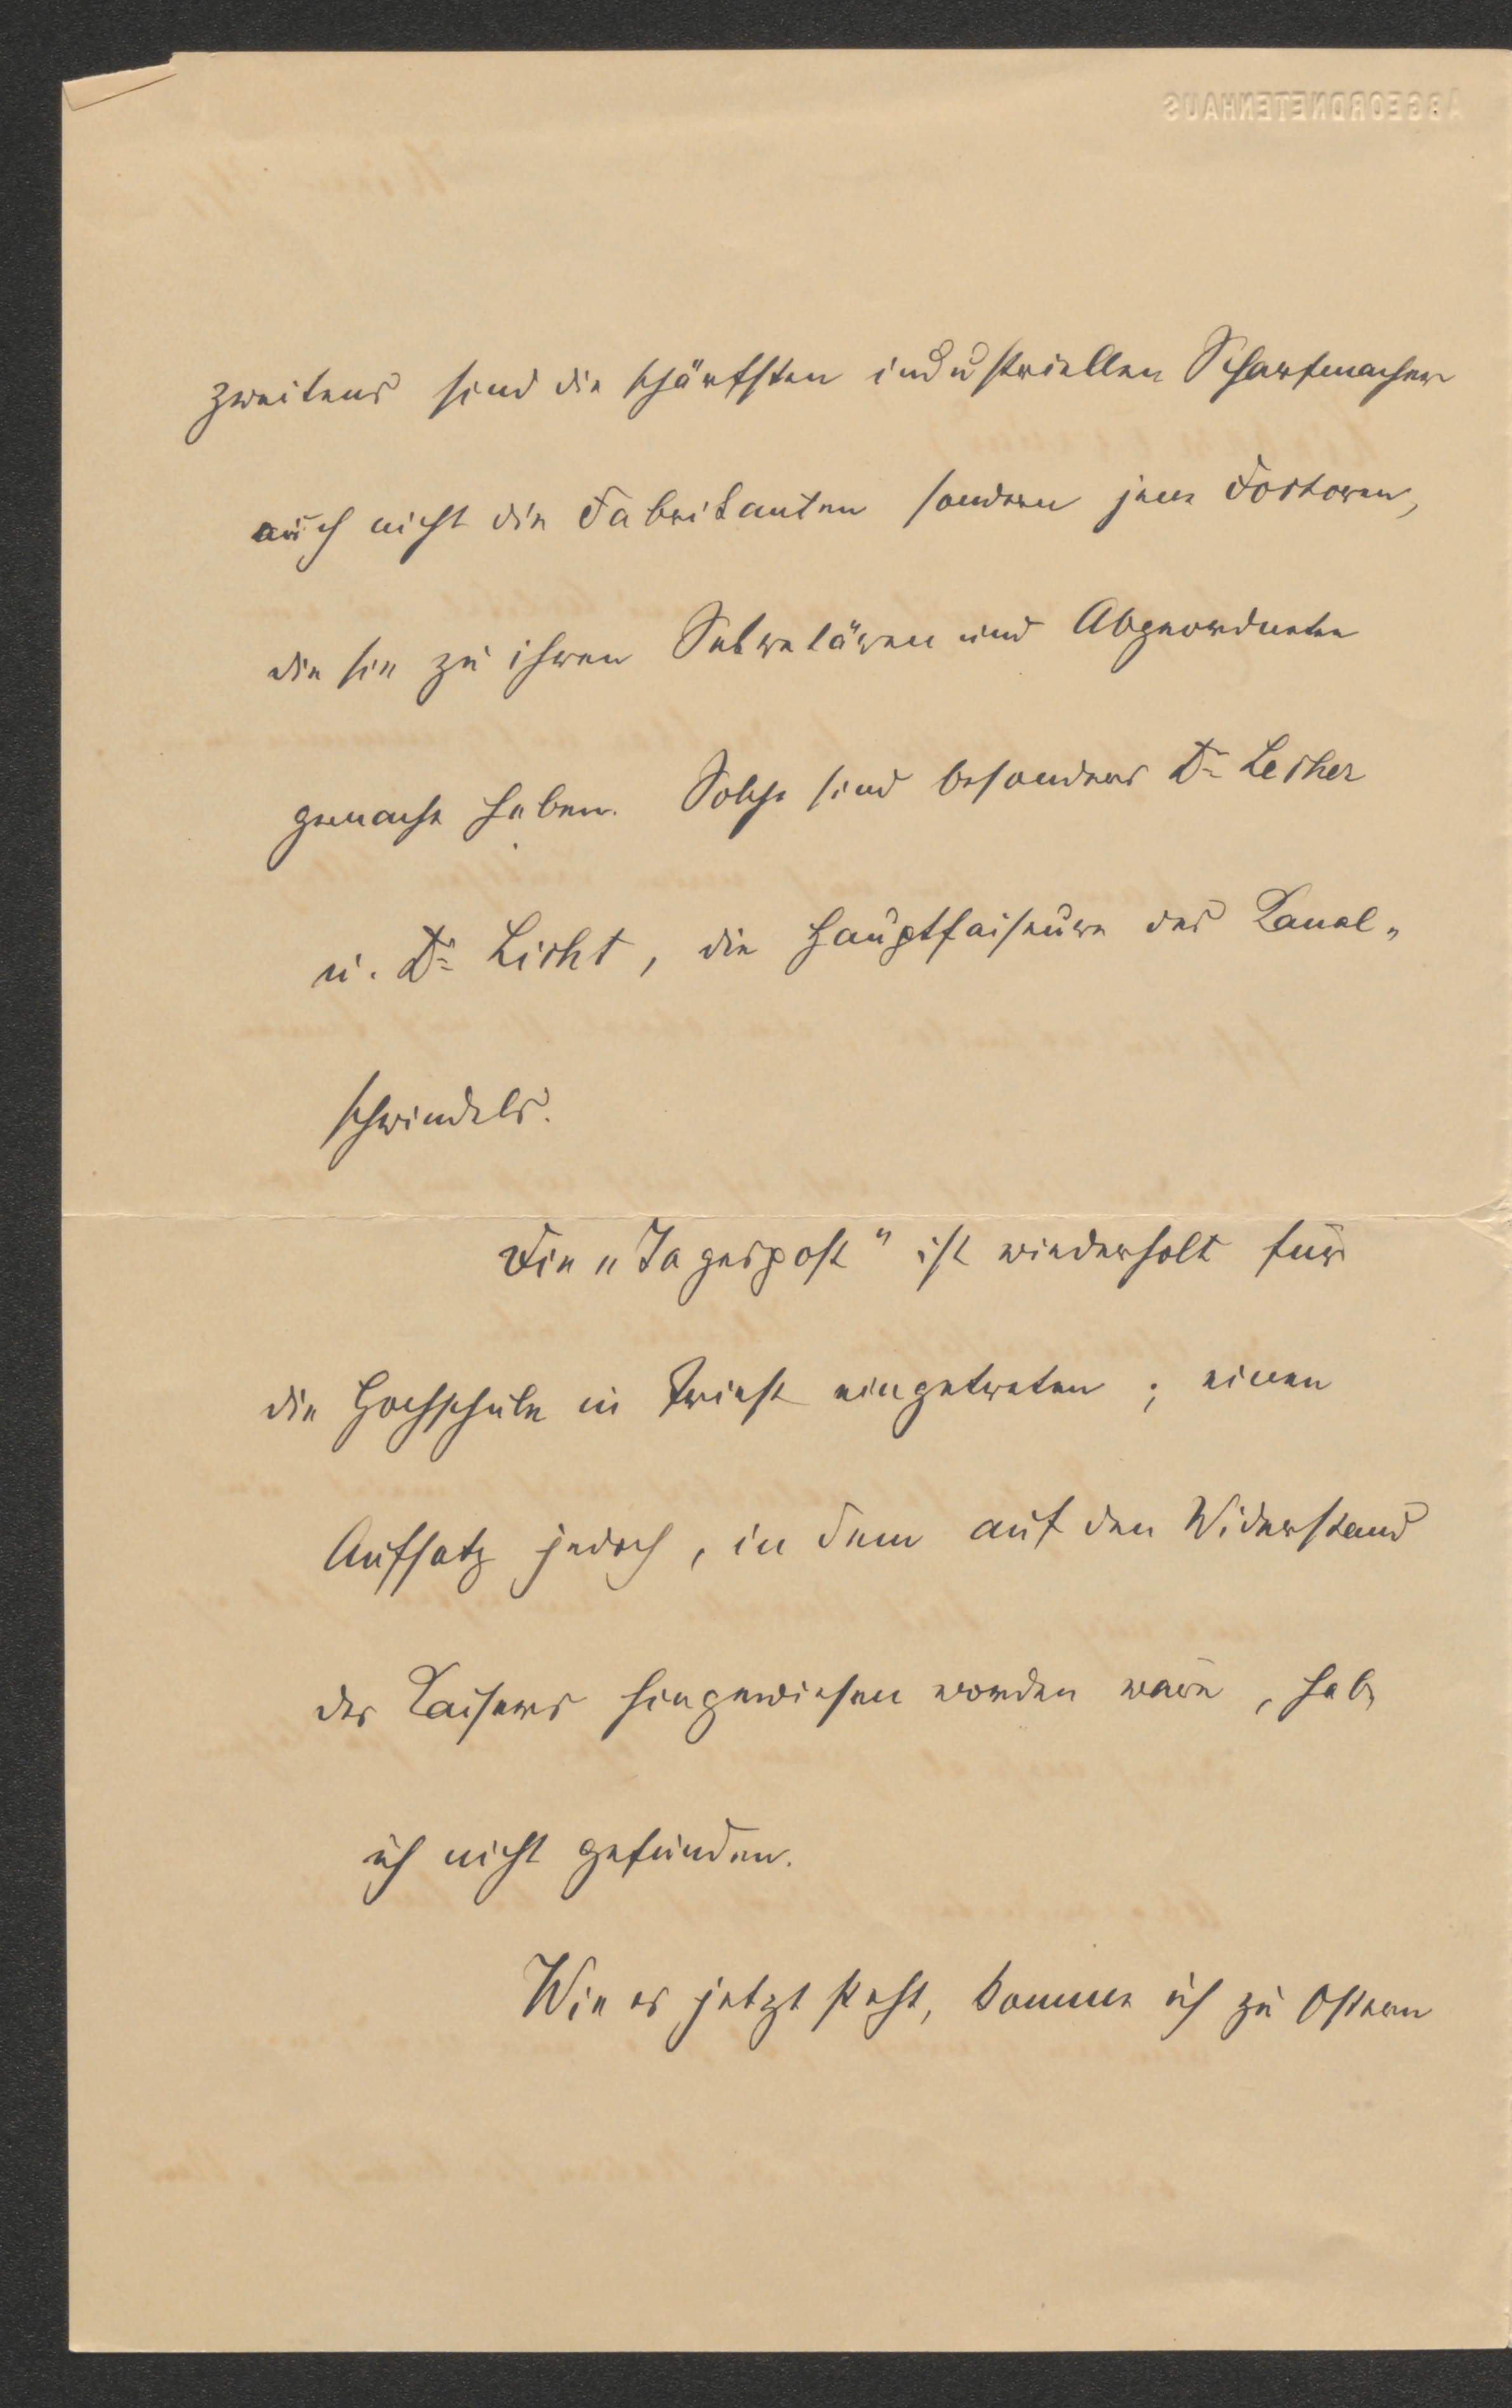 ABGEORDNETENHAUS
zweitens sind die schärfsten industriellen Scharfmacher
auch nicht die Fabrikanten sondern jene Doctoren,
die sie zu ihren Sekretären und Abgeordneten
gemacht haben. Solche sind besonders Dr. Lecher
u. Dr. Licht, die Hauptfaiseure des Kanal-
schwindels.
Die „Tagespost" ist wiederholt für
die Hochschule in Triest eingetreten; einen
Aufsatz jedoch, in dem auf den Widerstand
des Kaisers hingewiesen worden wäre, hab
ich nicht gefunden.
Wie es jetzt steht, komme ich zu Ostern